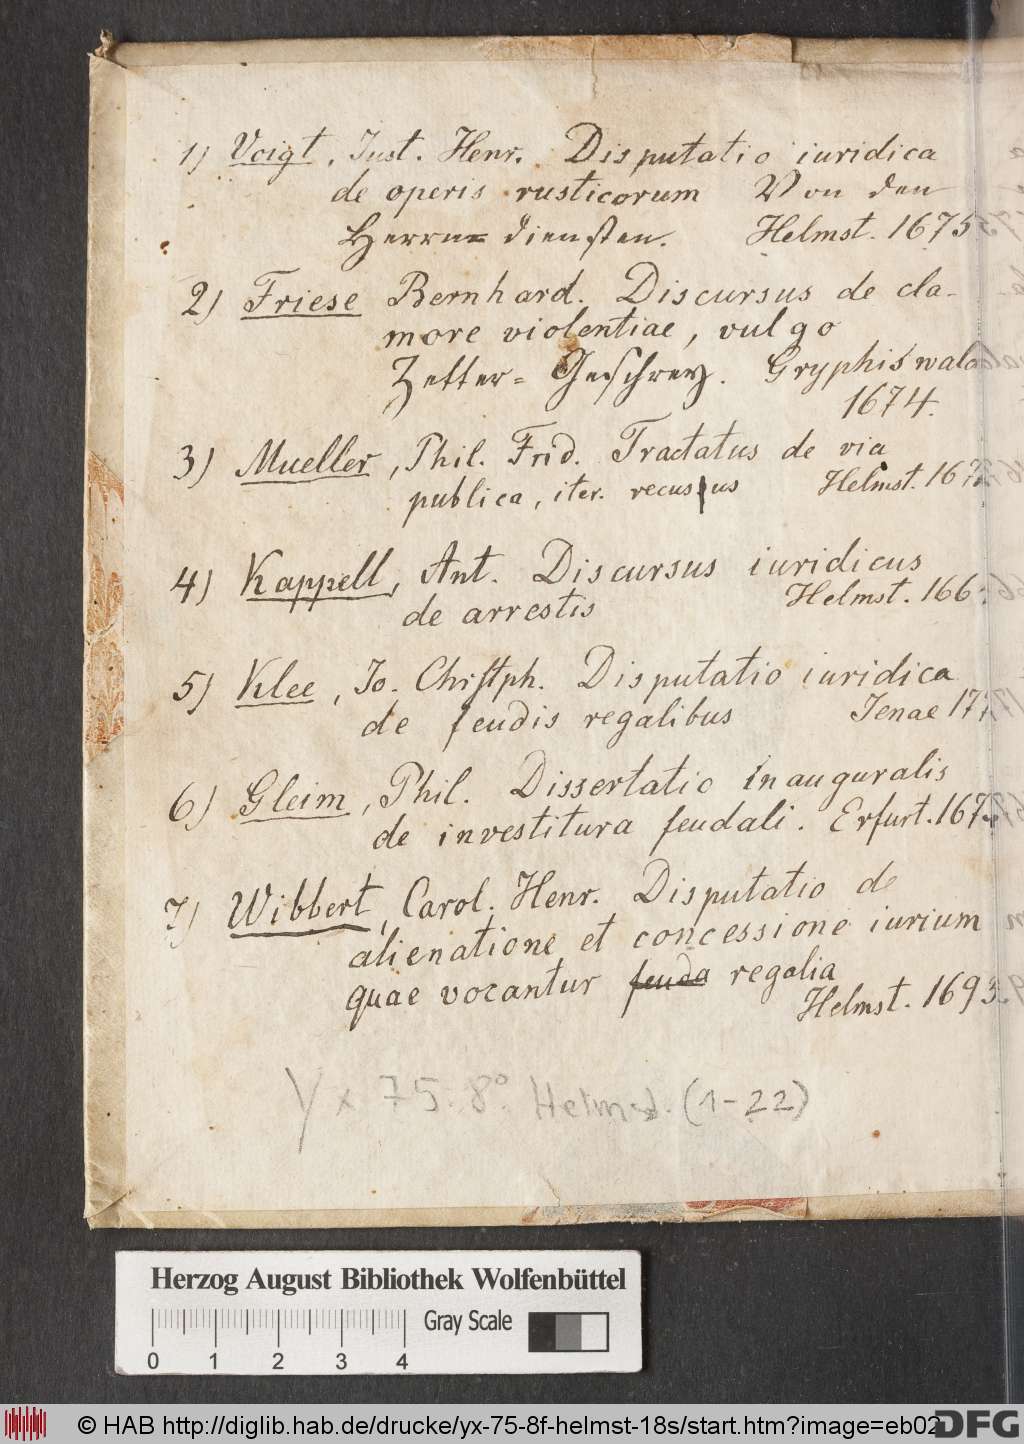 1) Voigt, Just. Henr. Disputatio iuridica
de operis rusticorum Von den
Herrn= diensten. Helmst. 1675
2) Friese Bernhard. Discursus de cla-
more violentiae, vulgo
Zetter= Geschrey. Gryphiswald
1674.
3) Mueller, Phil. Frid. Tractatus de via
publica, iter. recusus Helmst. 167
4) Kappell, Ant. Discursus iuridicus
de arrestis Helmst. 166
5) Klee, Jo. Christph. Disputatio iuridica
de feudis regalibus Jenae 17
6) Gleim, Phil. Dissertatio inauguralis
de investitura feudali. Erfurt. 167
7) Wibbert, Carol. Henr. Disputatio de
alienatione et concessione iurium
quae vocantur feuda regalia
Helmst. 1693
Yx 75. 8° Helmst. (1-22)
Herzog August Bibliothek Wolfenbüttel
Gray Scale
0 1 2 3 4
© HAB http://diglib.hab.de/drucke/yx-75-8f-helmst-18s/start.htm?image=eb02
DFG